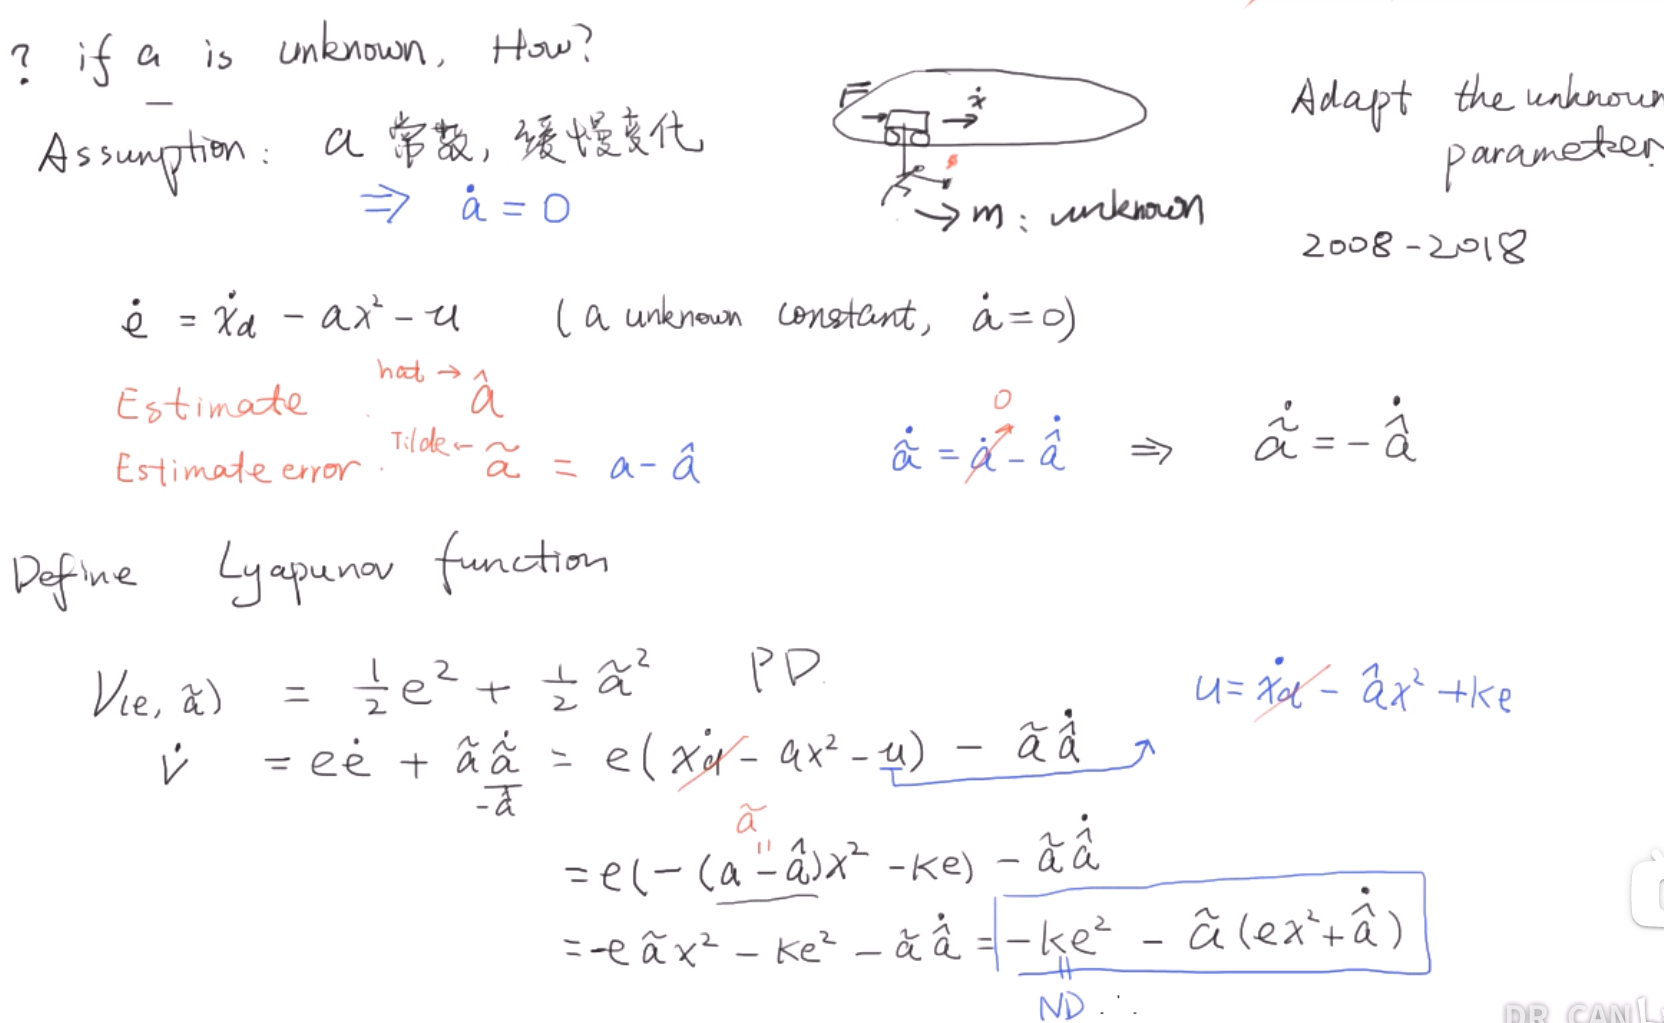 ? if a is unknown, How?
Assumption: a 常数, 缓慢变化
⇒ ȧ = 0
F ẋ
→ m: unknown
Adapt the unknown
parameter
2008-2018
ė = ẋd - ax² - u (a unknown constant, ȧ=0)
Estimate hat → â
Estimate error. Tilde ← ã = a - â
ã̇ = ȧ - â̇ ⇒ ã̇ = - â̇
0
Define Lyapunov function
V(e, ã) = ½e² + ½ã² PD.
u = ẋd - âx² + ke
V̇ = eė + ãã̇ = e(ẋd - ax² - u) - ãâ̇
-â̇
ã
=
= e(-(a - â)x² - ke) - ãâ̇
= -eãx² - ke² - ãâ̇ = -ke² - ã(ex² + â̇)
ND ∴
DR_CAN